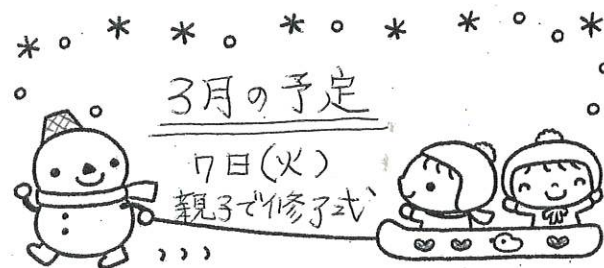 3月の予定
7日(火)
親子で修了式